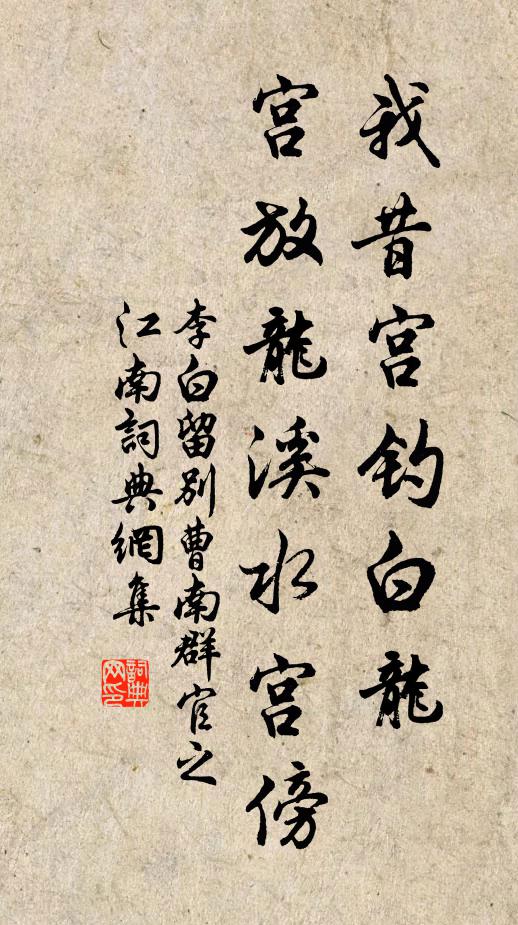 我昔宫钓白龍
宫放龍溪水宫傍
李白留别曹南群官之
江南詞典網集
詞典
网印